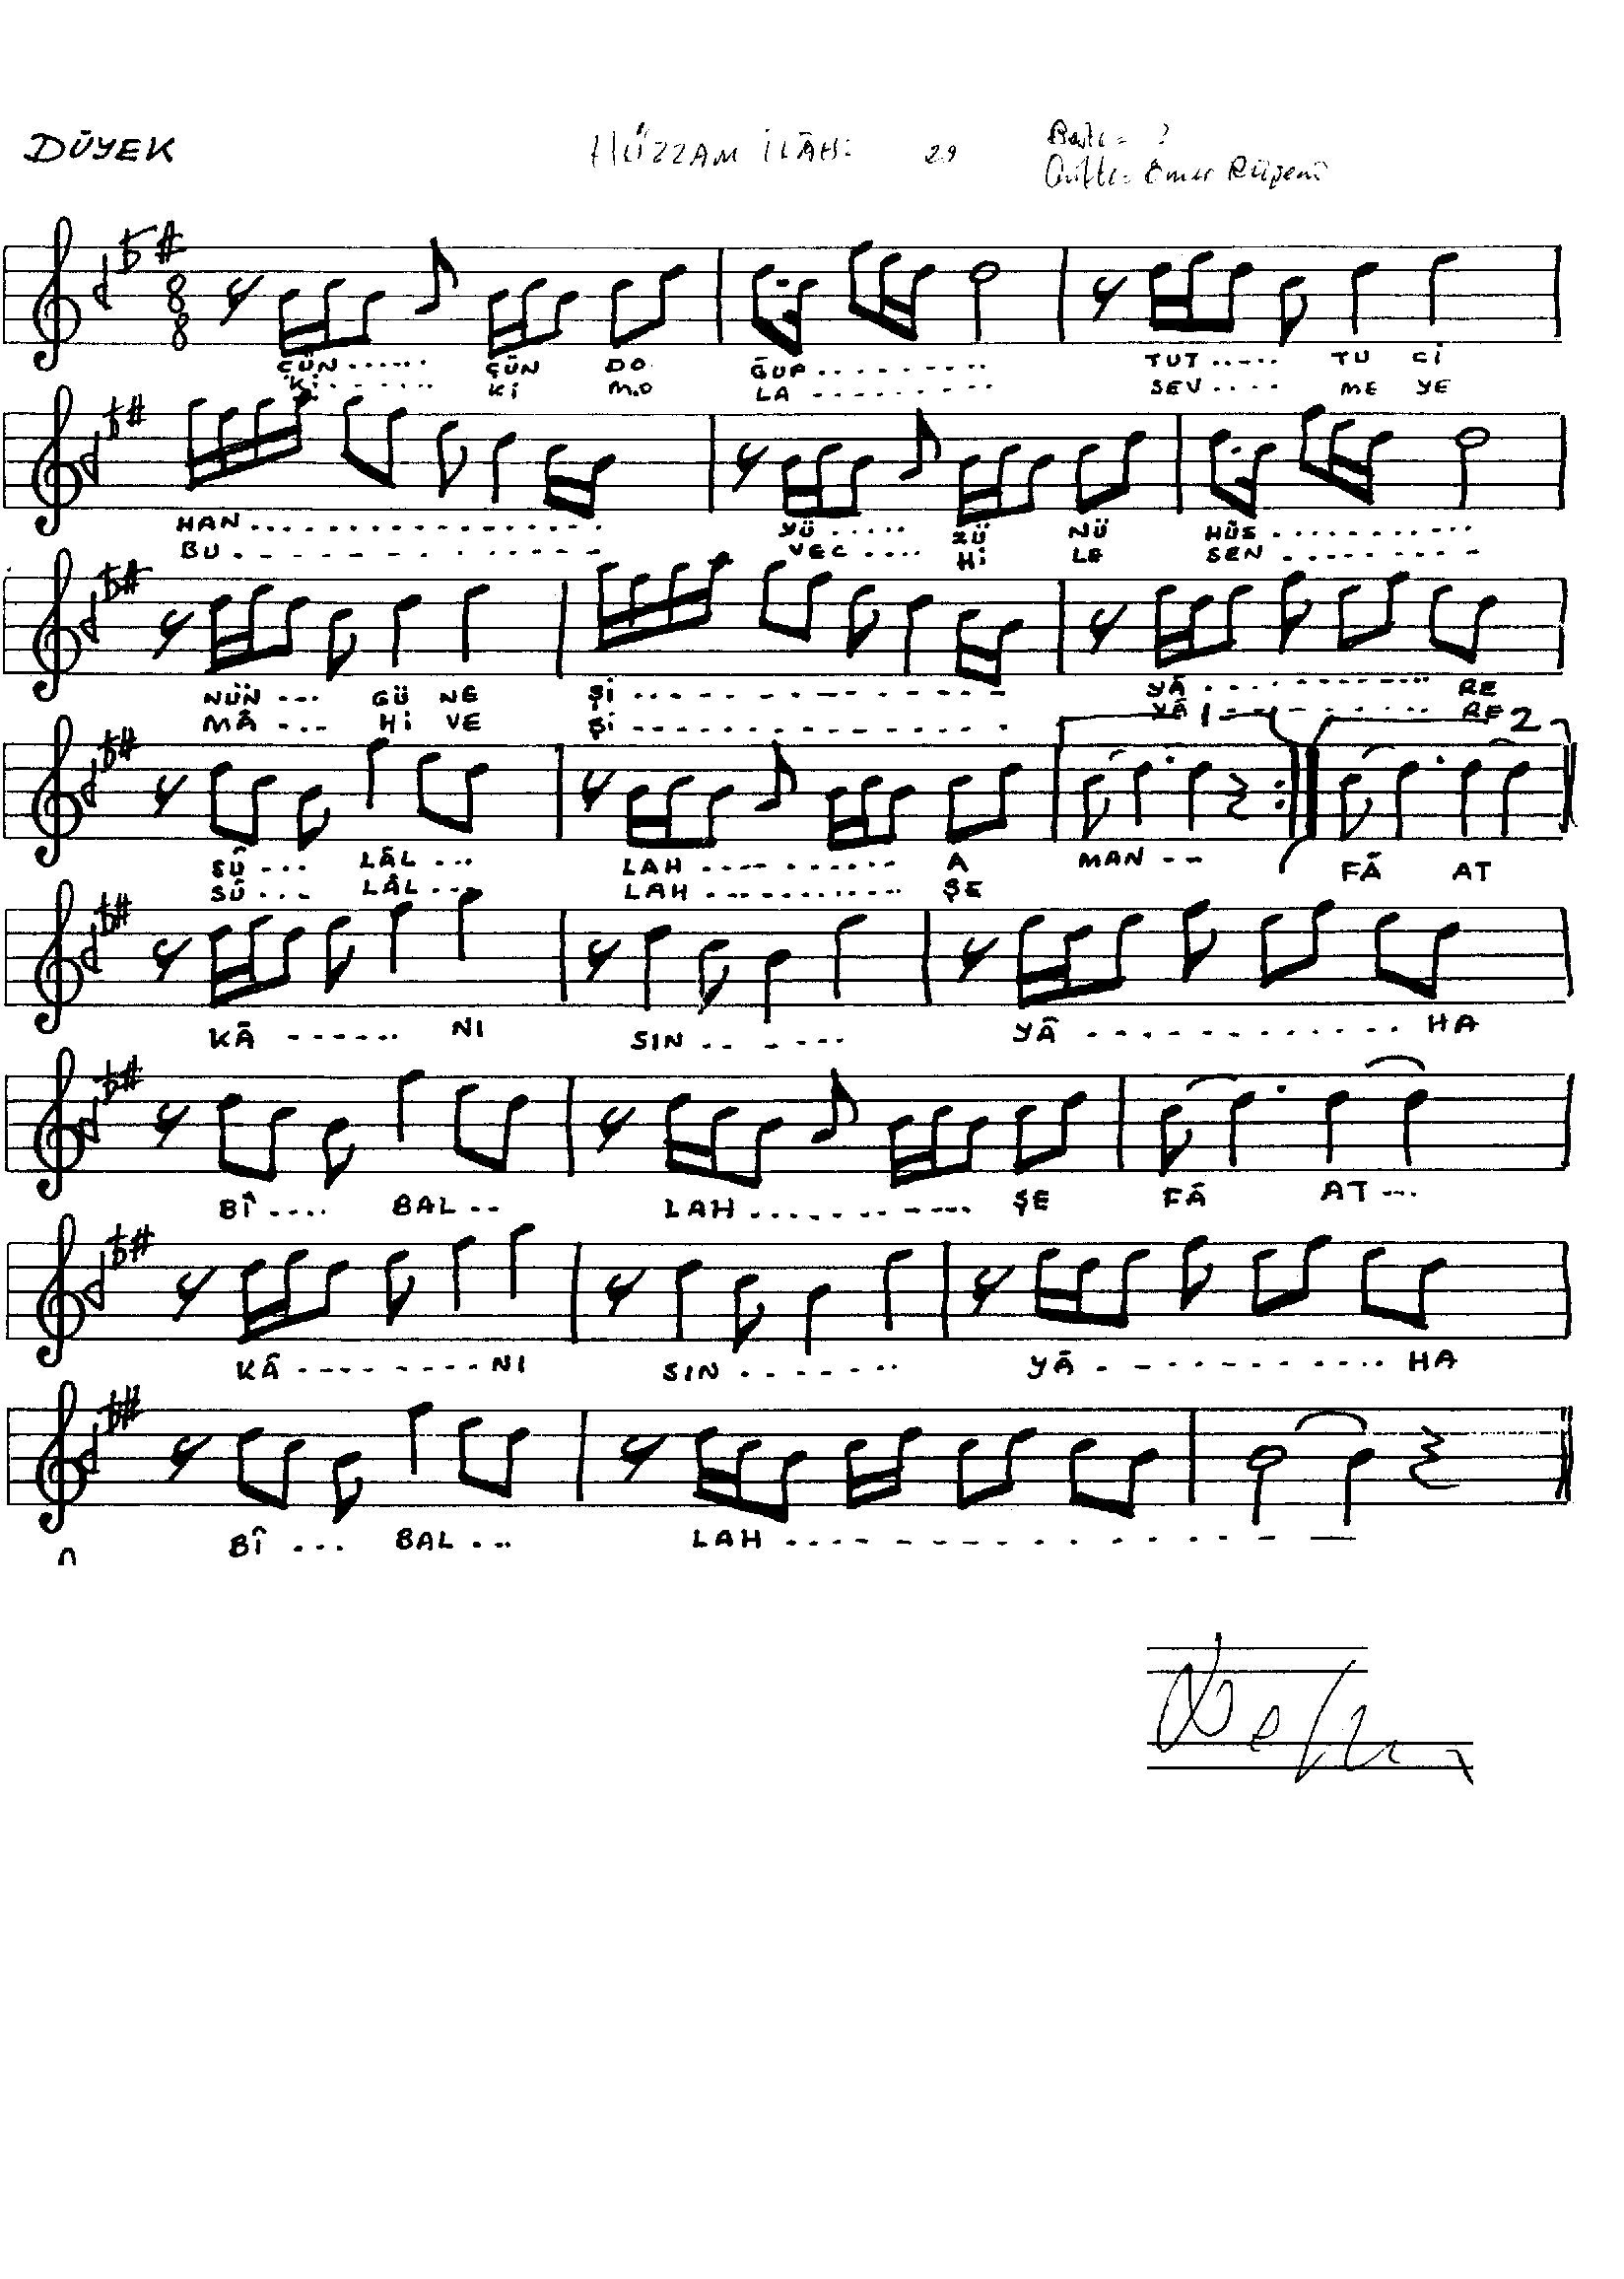 DÜYEK HÜZZAM İLÂHİ 29 Beste = ?
Güfte = Ömer Rûşenî
8
8
ÇÜN...... ÇÜN DO ĞUP......... TUT..... TU Cİ
Kİ....... Kİ MO LA ......... SEV.... ME YE
HAN.............. YÜ..... ZÜ NÜ HÜS.........
BU.............. VEC.... Hİ LE SEN ........
NÜN ... GÜ NE Şİ .............. YÂ .......... RE
MÂ .... Hİ VE Şİ .............. YÂ .......... RE
1 2
SÛ ... LÂL ... LAH ........ A MAN -- FÂ AT
SÛ ... LÂL ... LAH ........ ŞE
KÂ ...... NI SIN ...... YÂ ............ HA
BÎ .... BAL .. LAH ......... ŞE FÂ AT ...
KÂ ......... NI SIN ....... YÂ ........... HA
BÎ ... BAL ... LAH ................